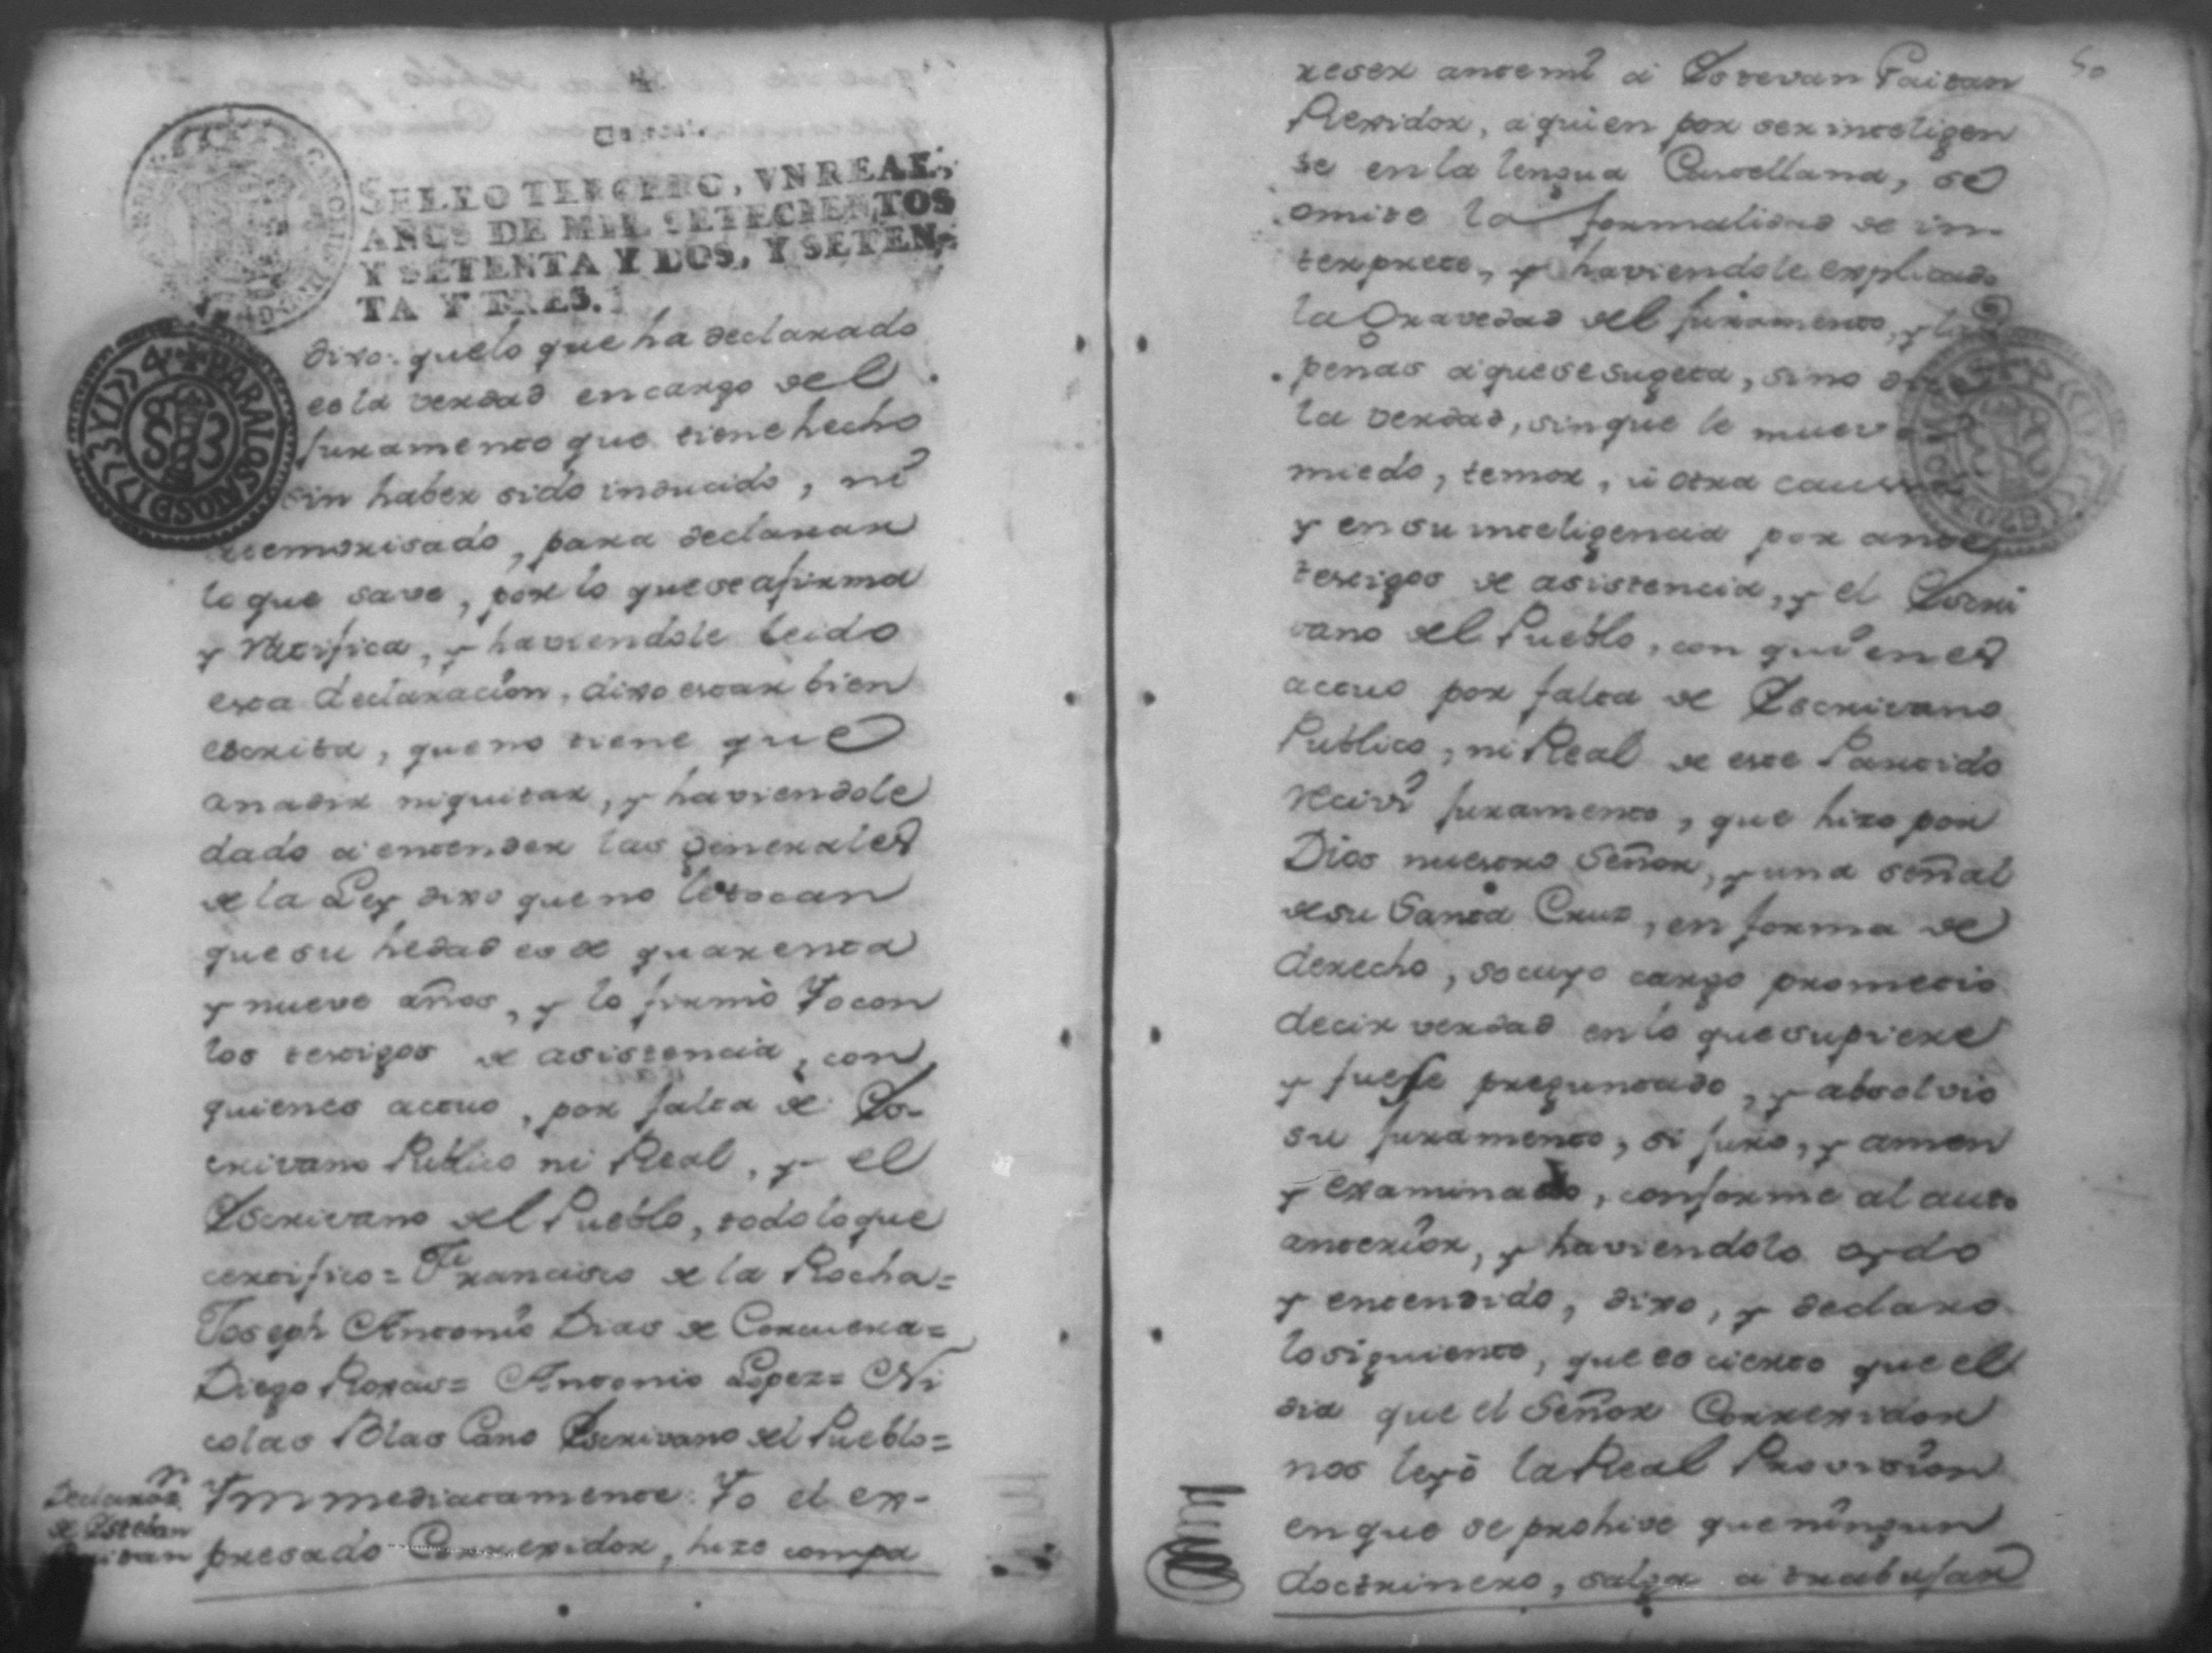 SELLO TERCERO, VN REAL,
AÑOS DE MIL SETECIENTOS
Y SETENTA Y DOS, Y SETEN-
TA Y TRES.
PARA LOS AÑOS D 1773 Y 1774
dixo: que lo que ha declarado
es la verdad en cargo del
juramento que tiene hecho
sin haber sido inducido, ni
atemorisado, para declarar
lo que save, por lo que se afirma
y ratifica, y haviendole leido
esta declaracion, dixo estar bien
escrita, que no tiene que
anadir ni quitar, y haviendole
dado a entender las generales
de la Ley dixo que no le tocan
que su hedad es de quarenta
y nueve años, y lo firmò Yo con
los testigos de asistencia, con
quienes actuo, por falta de Es-
crivano Publico ni Real, y el
Escrivano del Pueblo, todo lo que
certifico = Francisco de la Rocha =
Joseph Antonio Dias de Corcuera =
Diego Roxas = Antonio Lopez = Ni
colas Blas Cano Escrivano del Pueblo =
Declaron.
de Esteban
Paitan
Ymmediatamente Yo el ex-
presado Correxidor, hize compa
50
reser antemi a Estevan Paitan
Rexidor, a quien por ser inteligen
te en la lengua Castellana, se
omite la formalidad de in-
terprete, y haviendole explicado
la Gravedad del juramento, y las
penas a que se sugeta, si no dice
la verdad, sin que le mueva
miedo, temor, ù otra causa
y en su inteligencia por ante
testigos de asistencia, y el Escri
vano del Pueblo, con quienes
actuo por falta de Escrivano
Publico, ni Real de este Partido
recivi juramento, que hizo por
Dios nuestro Señor, y una señal
de su Santa Cruz, en forma de
derecho, so cuyo cargo prometio
decir verdad en lo que supiere
y fuese preguntado, y absolvio
su juramento, si juro, y amen
y examinado, conforme al auto
anterior, y haviendolo oydo
y entendido, dixo, y declaro
lo siguiente, que es cierto que el
dia que el Señor Correxidor
nos leyò la Real Provision
en que se prohive que ningun
doctrinero, salga a trabajar